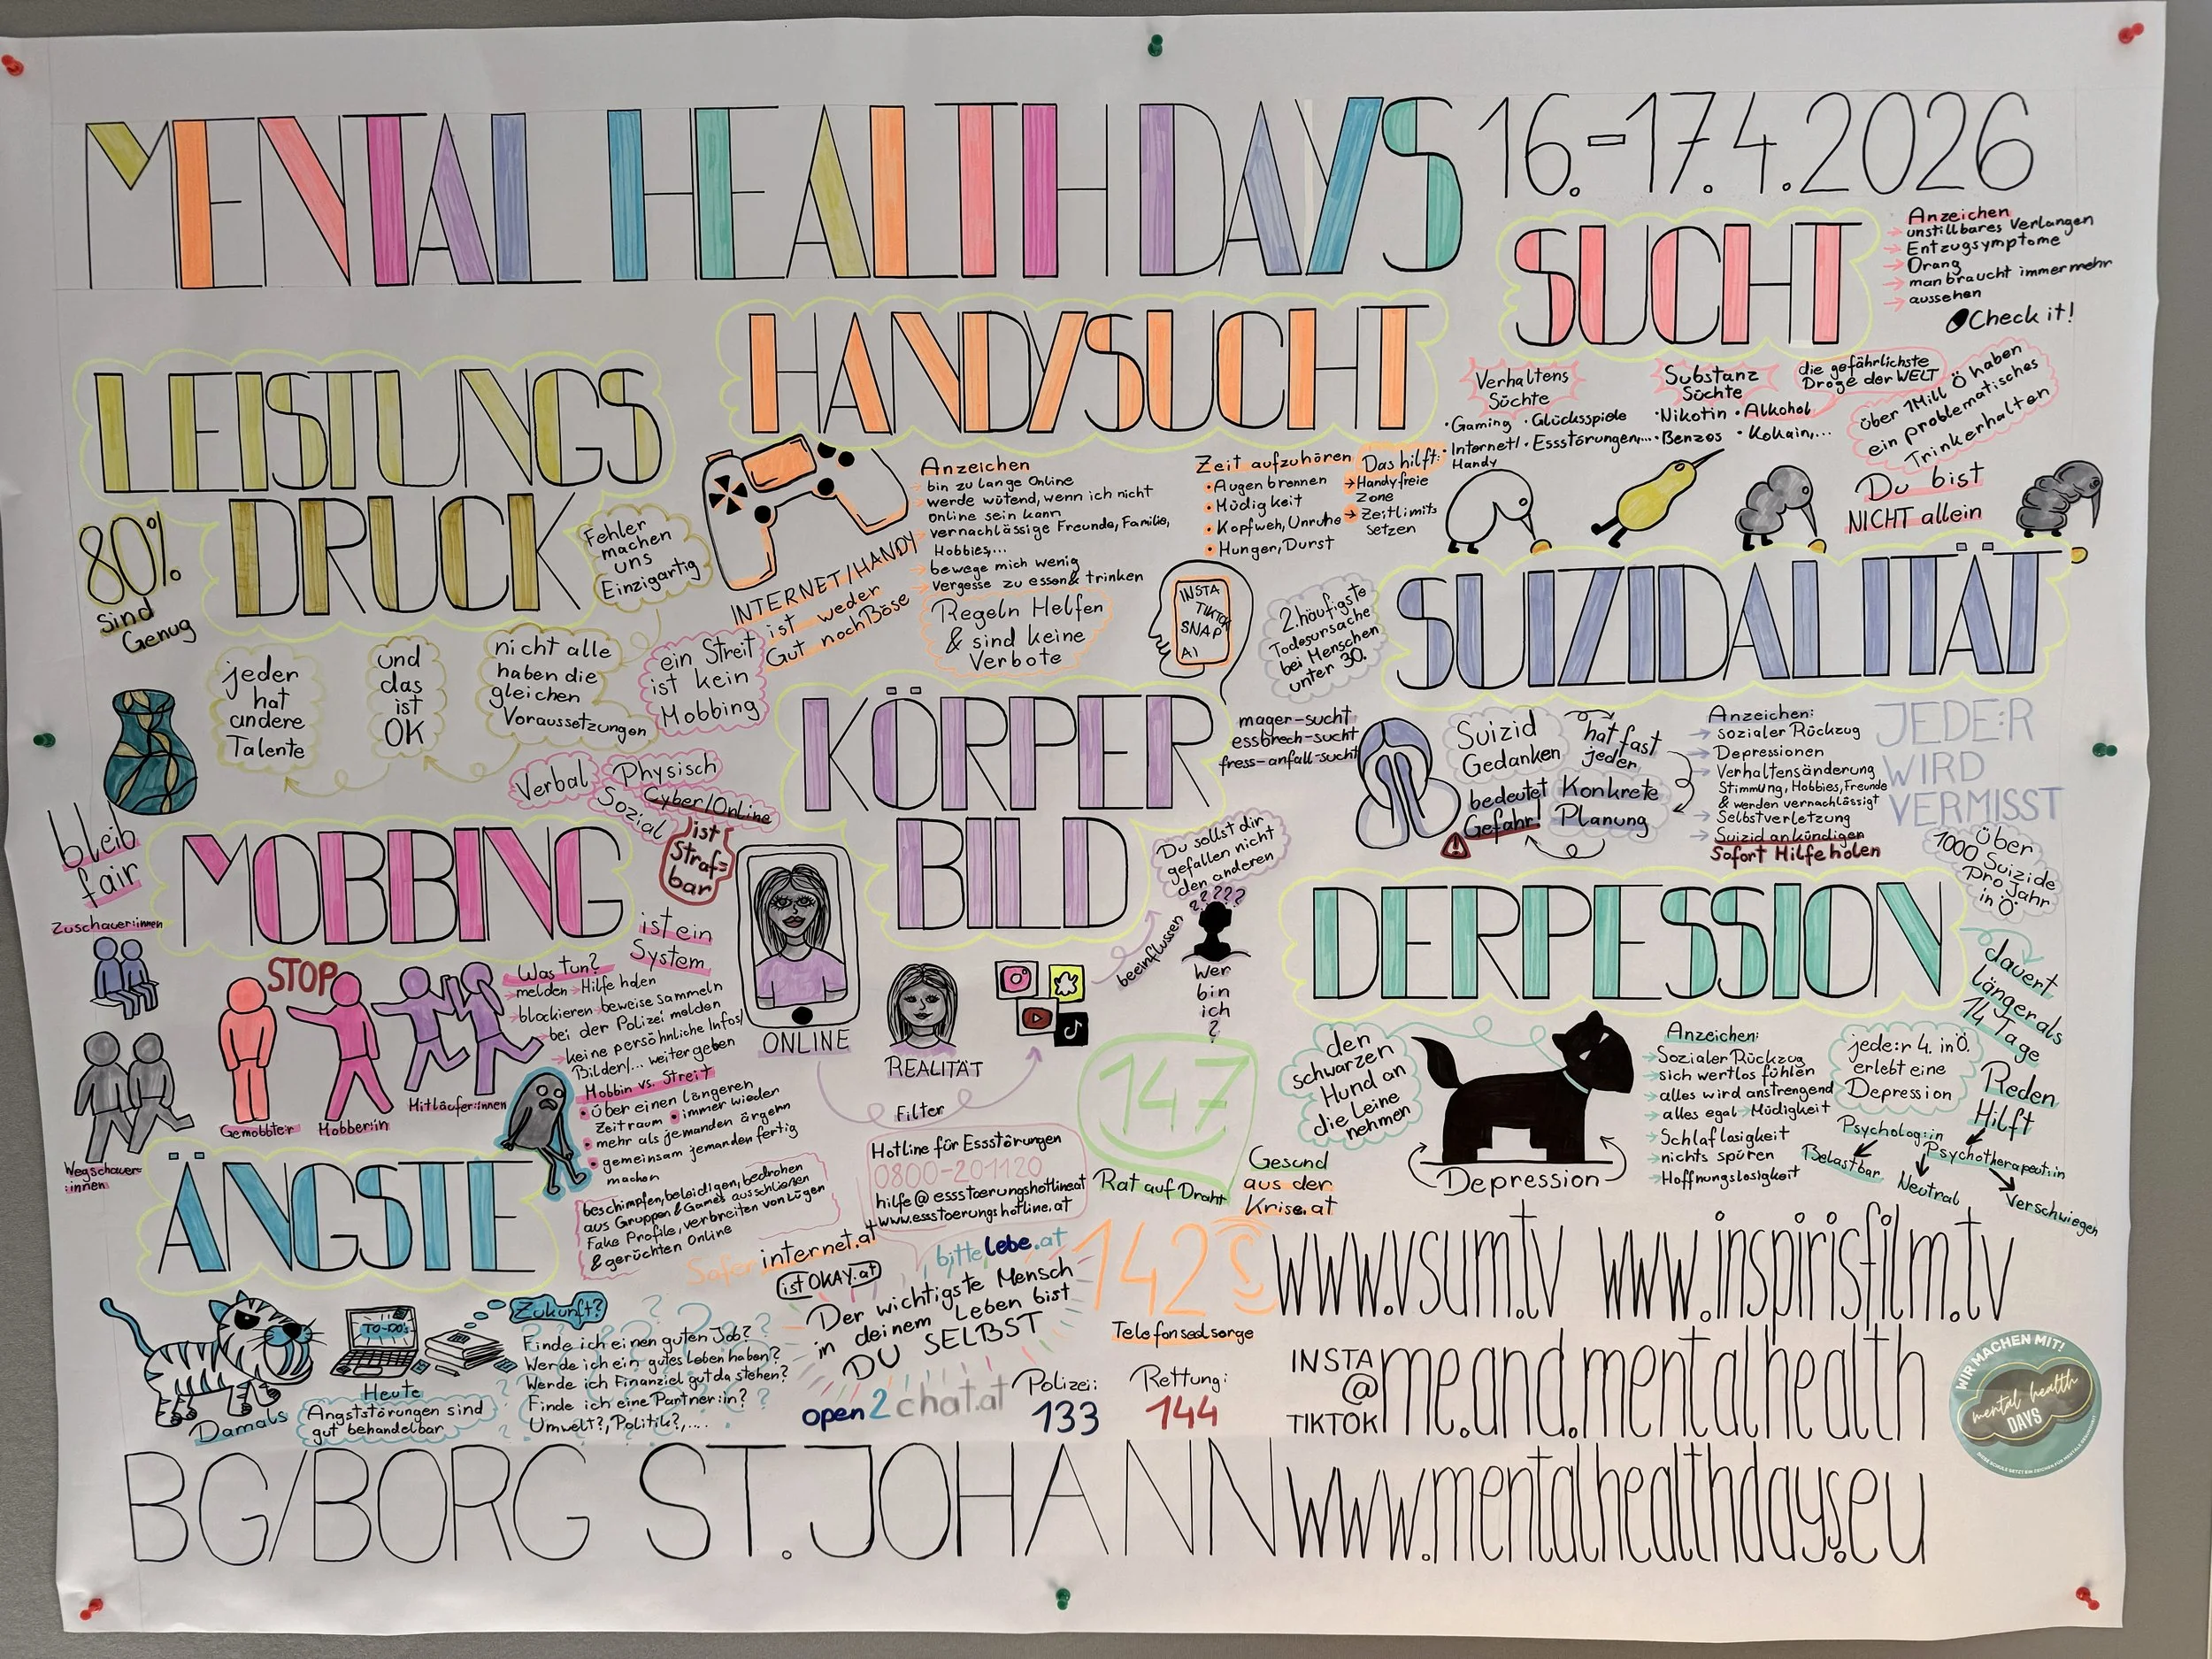 MENTAL HEALTH DAYS 16.-17.4.2026
SUCHT
Anzeichen
unstillbares Verlangen
Entzugsymptome
Drang
man braucht immer mehr
aussehen
Check it!
Verhaltens
Süchte
• Gaming • Glücksspiele
• Internet/ • Essstörungen,...
Handy
Substanz
Süchte
• Nikotin • Alkohol
• Benzos • Kokain,...
die gefährlichste
Droge der WELT
über 1Mill Ö haben
ein problematisches
Trinkerhalten
Du bist
NICHT allein
HANDYSUCHT
Anzeichen
bin zu lange Online
werde wütend, wenn ich nicht
online sein kann
vernachlässige Freunde, Familie,
Hobbies,...
bewege mich wenig
vergesse zu essen & trinken
Zeit aufzuhören
• Augen brennen
• Müdigkeit
• Kopfweh, Unruhe
• Hunger, Durst
Das hilft:
→ Handyfreie
Zone
→ Zeitlimits
setzen
INTERNET/HANDY
ist weder
Gut noch Böse
Regeln Helfen
& sind keine
Verbote
INSTA
TIKTOK
SNAP
AI
LEISTUNGS
DRUCK
80%
Sind
Genug
Fehler
machen
uns
Einzigartig
jeder
hat
andere
Talente
und
das
ist
OK
nicht alle
haben die
gleichen
Voraussetzungen
SUIZIDALITÄT
2. häufigste
Todesursache
bei Menschen
unter 30.
Suizid
Gedanken
hat fast
jeder
bedeutet
Gefahr!
Konkrete
Planung
Anzeichen:
→ sozialer Rückzug
→ Depressionen
→ Verhaltensänderung
Stimmung, Hobbies, Freunde
& werden vernachlässigt
→ Selbstverletzung
→ Suizid ankündigen
Sofort Hilfe holen
JEDE:R
WIRD
VERMISST
Über
1000 Suizide
Pro Jahr
in Ö
KÖRPER
BILD
mager-sucht
essbrech-sucht
fress-anfall-sucht
Du sollst dir
gefallen nicht
den anderen
?????
beeinflussen
Wer
bin
ich
?
ONLINE
REALITÄT
Filter
Hotline für Essstörungen
0800-201120
hilfe@essstoerungshotline.at
www.essstoerungshotline.at
MOBBING
ein Streit
ist kein
Mobbing
Verbal
Physisch
Sozial
Cyber/Online
ist
Straf=
bar
bleib
fair
ist ein
System
Zuschauer:innen
STOP
Gemobbte:r
Mobber:in
Mitläufer:innen
Wegschauer=
:innen
Was tun?
→ melden → Hilfe holen
→ blockieren → beweise sammeln
→ bei der Polizei melden
→ keine persöhnliche Infos/
Bilder/... weitergeben
Mobbin vs. Streit
• über einen längeren
Zeitraum • immer wieder
• mehr als jemanden ärgern
• gemeinsam jemanden fertig
machen
beschimpfen, beleidigen, bedrohen
aus Gruppen & Games ausschließen
Fake Profile, verbreiten von Lügen
& gerüchten Online
DERPESSION
dauert
länger als
14 Tage
den
schwarzen
Hund an
die Leine
nehmen
Depression
Anzeichen:
Sozialer Rückzug
sich wertlos fühlen
→ alles wird anstrengend
→ alles egal → Müdigkeit
→ Schlaflosigkeit
→ nichts spüren
→ Hoffnungslosigkeit
jede:r 4. in Ö.
erlebt eine
Depression
Reden
Hilft
Psycholog:in
Psychotherapeut:in
Belastbar
Neutral
Verschwiegen
ÄNGSTE
Damals
TO-DO's
Heute
Angststörungen sind
gut behandelbar
Zukunft?
Finde ich einen guten Job?
Werde ich ein gutes Leben haben?
Werde ich Finanziel gut da stehen?
Finde ich eine Partner:in?
Umwelt?, Politik?,....
147
Rat auf Draht
Gesund
aus der
Krise.at
Saferinternet.at
istOKAY.at
bittelebe.at
Der wichtigste Mensch
in deinem Leben bist
DU SELBST
open2chat.at
142
Telefonseelsorge
Polizei:
133
Rettung:
144
www.vsum.tv www.inspirisfilm.tv
INSTA
@
TIKTOK
me.and.mentalhealth
www.mentalhealthdays.eu
WIR MACHEN MIT!
mental health
DAYS
BG/BORG ST. JOHANN